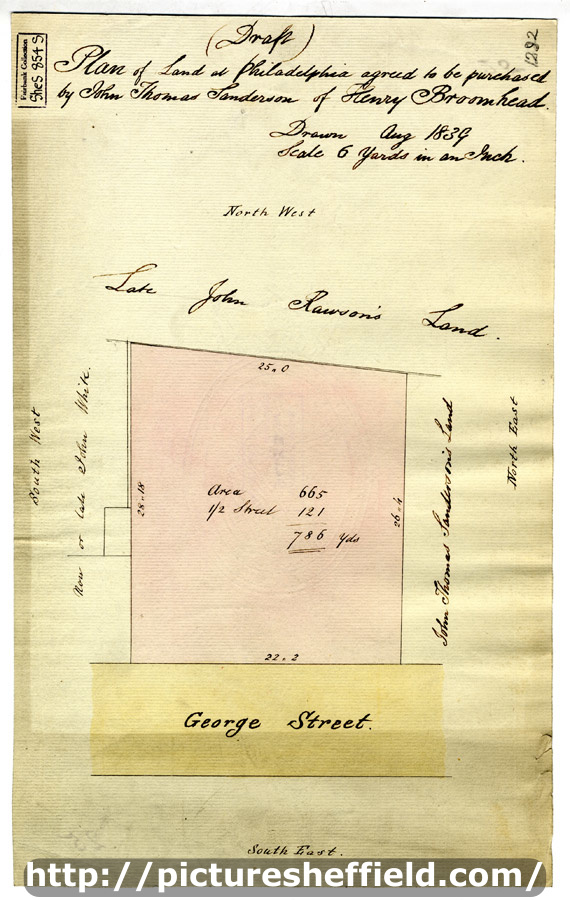 (Draft)
1292
Fairbank Collection
SheS 854 S
Plan of Land at Philadelphia agreed to be purchased
by John Thomas Sanderson of Henry Broomhead.
Drawn Aug 1839
Scale 6 Yards in an Inch.
North West
Late John Rawson's Land.
25,, 0
South West
Now or late John White.
28,, 18
Area 665
1/2 Street 121
786 Yds
26,, 4
John Thomas Sanderson's Land
North East
22,, 2
George Street.
South East.
http://picturesheffield.com/